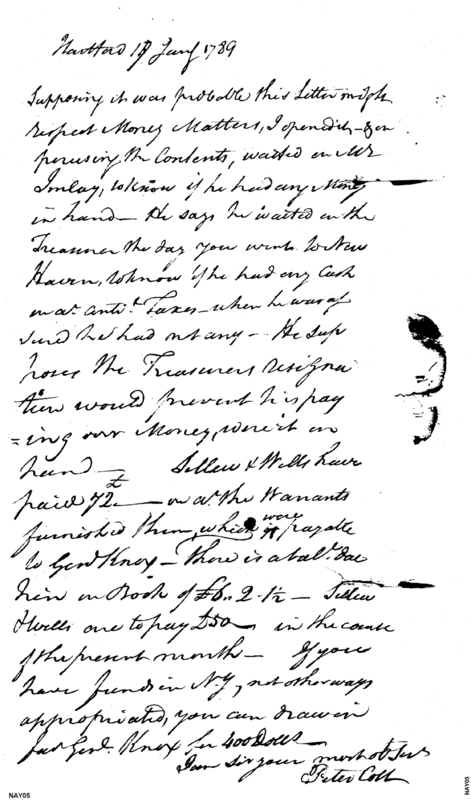 Hartford 17 Jany 1789
Supposing it was probable this Letter might
respect Money Matters, I opened it – & on
perusing the Contents, waited on Mr
Imlay, to know if he had any Money
in hand – He says he waited on the
Treasurer the day you went to New
Haven, to know if he had any Cash
on ac. Taxes – when he was as
sured he had not any – He sup
poses the Treasurers resigna
tion would prevent his pay
=ing over Money, were it on
hand – & Wells have
paid 72£ – on ac. the Warrants
furnished them, which were payable
to Genl Knox – There is a bale. due
him on Book of £6..2.1½ –
& Wells are to pay £50 – in the course
of the present month – If you
have funds in N.Y, not otherways
appropriated, you can draw in
favr Genl. Knox for 400 Dolls
I am Sir your most obt Servt
Peter Colt
NAY05
NAY05